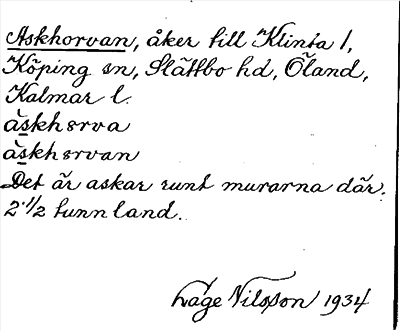 Askhorvan, åker till Klinta 1,
Köping sn, Slättbo hd, Öland,
Kalmar l.
àskhørva
àskhørvan
Det är askar runt murarna där.
2 1/2 tunnland.
Låge Nilsson 1934